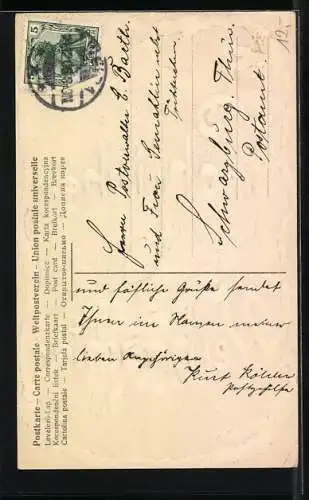 12.-
5
Postkarte – Carte postale Weltpostverein – Union postale universelle
Levelező-Lap. – Correspondenzkarte – Dopisnice – Karta korespondencyjna
Korespondenční lístek – Briefkaart – Post card – Brefkort – Brevkort
Cartolina postale – Tarjeta postal – Открытое письмо – Дописна карте
Herrn Postverwalter E. Baeth.
und Frau Gemahlin nebst
Töchterchen
Schwarzburg. Thür.
Postamt.
und fröhliche Grüße sendet
Ihnen im Namen meiner
lieben Angehörigen
Kurt Köhler
Postgehilfe